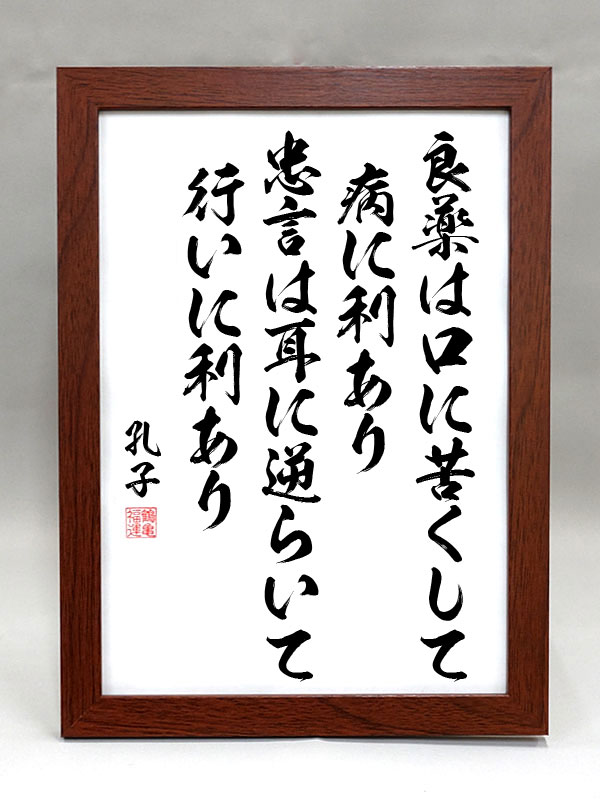 良薬は口に苦くして
病に利あり
忠言は耳に逆らいて
行いに利あり
孔子
鶴亀
福運